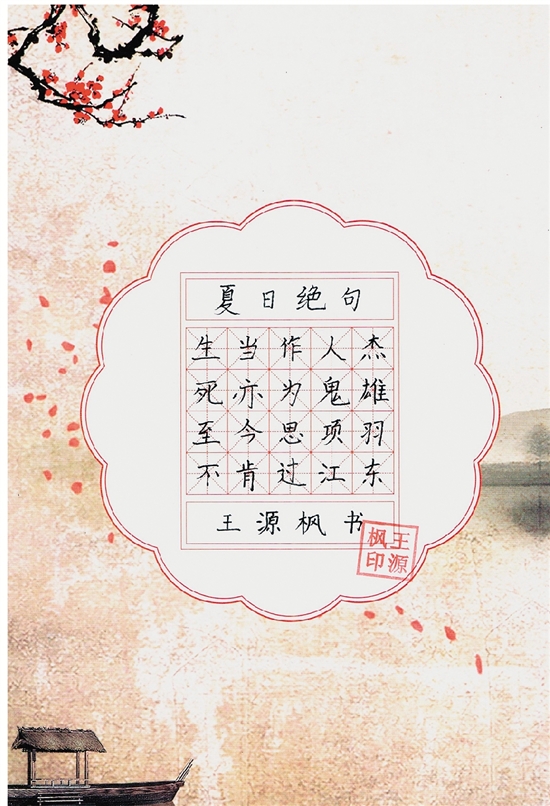 夏日绝句
生当作人杰
死亦为鬼雄
至今思项羽
不肯过江东
王源枫书
王源枫印